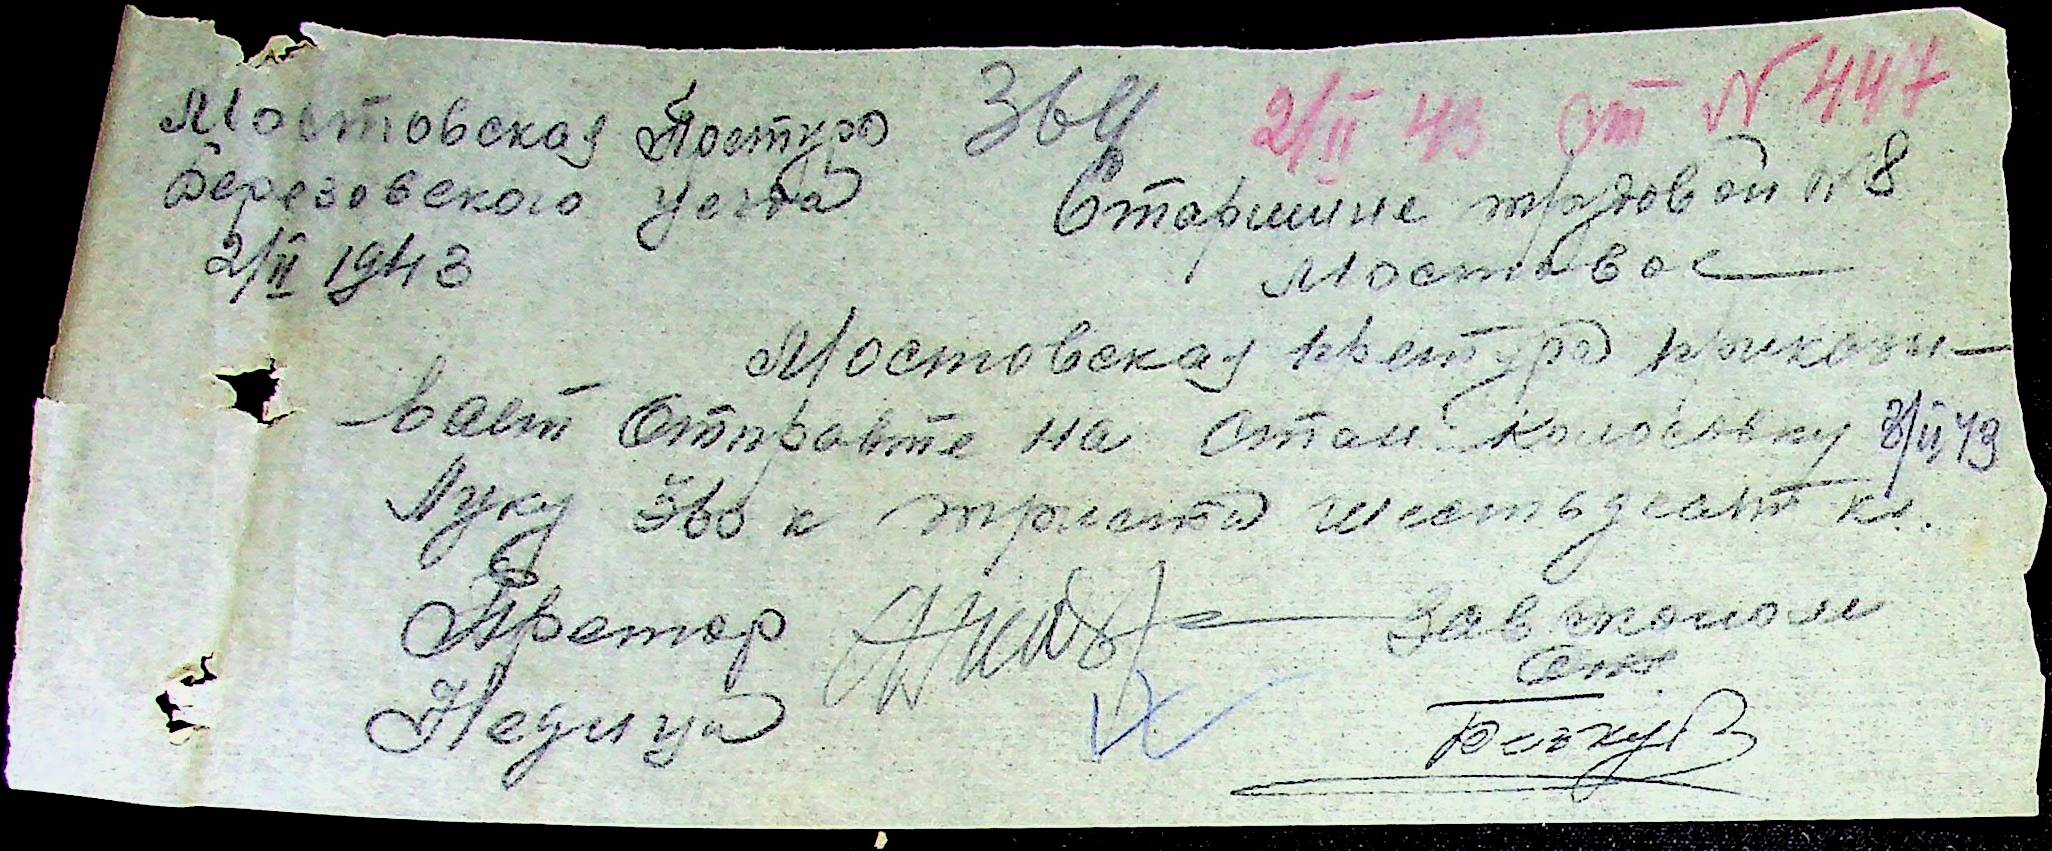 Мостовская Претура
Березовского уезда
2/II 1943
364
2/II 43 от N 447
Старшине трудовой N 8
Мостовое
Мостовская претура приказы-
вает Отправте на стан. колосовку 2/II 43
Муку 360 к триста шестьдесят кл.
Претор
Недица
Зав экопом